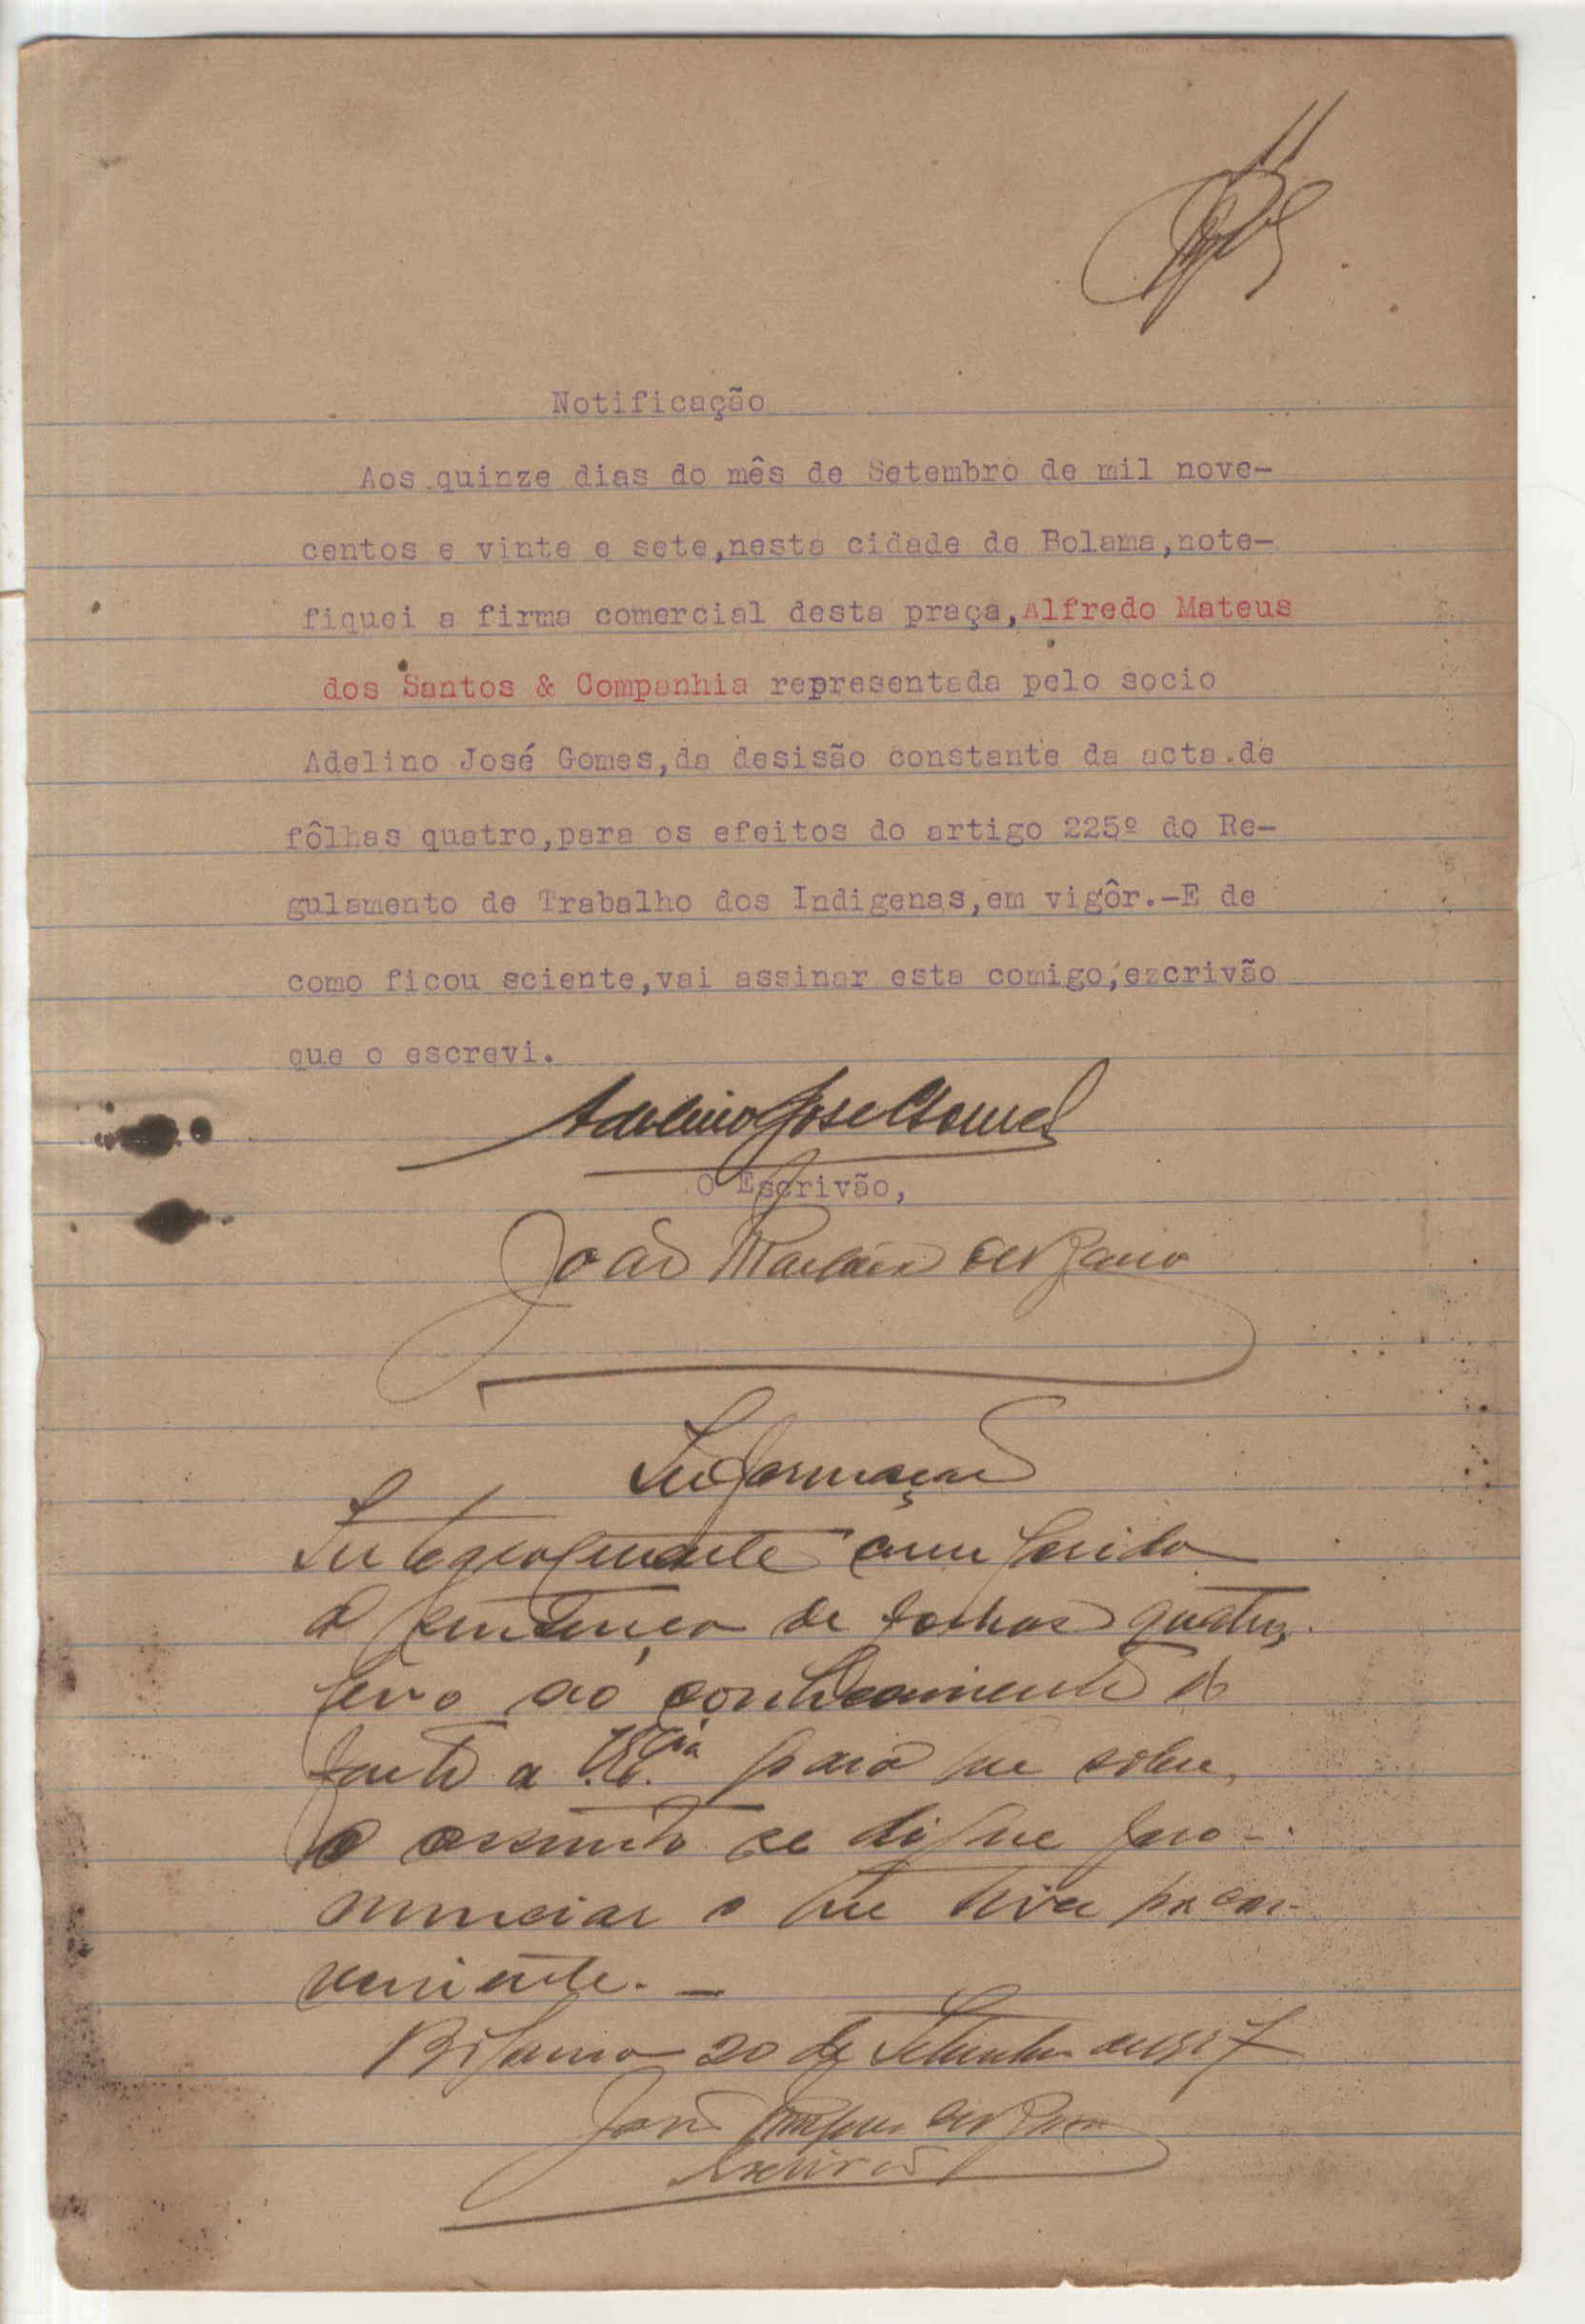 Notificação
Aos quinze dias do mês de Setembro de mil nove-
centos e vinte e sete,nesta cidade de Bolama,note-
fiquei a firma comercial desta praça,Alfredo Mateus
dos Santos & Companhia representada pelo socio
Adelino José Gomes,da desisão constante da acta.de
fôlhas quatro,para os efeitos do artigo 225º do Re-
gulamento de Trabalho dos Indigenas,em vigôr.-E de
como ficou sciente,vai assinar esta comigo,ezcrivão
que o escrevi.
Adelino José Gomes
O Escrivão,
João
Informação
Integralmente cumprida
a sentença de folhas quatro,
levo ao conhecimento de
a V. Exª para que sobre
o assunto se digne pro-
nunciar o que tiver por con-
veniente.-
Bolama 20 de Setembro de 1927
João
Escrivão